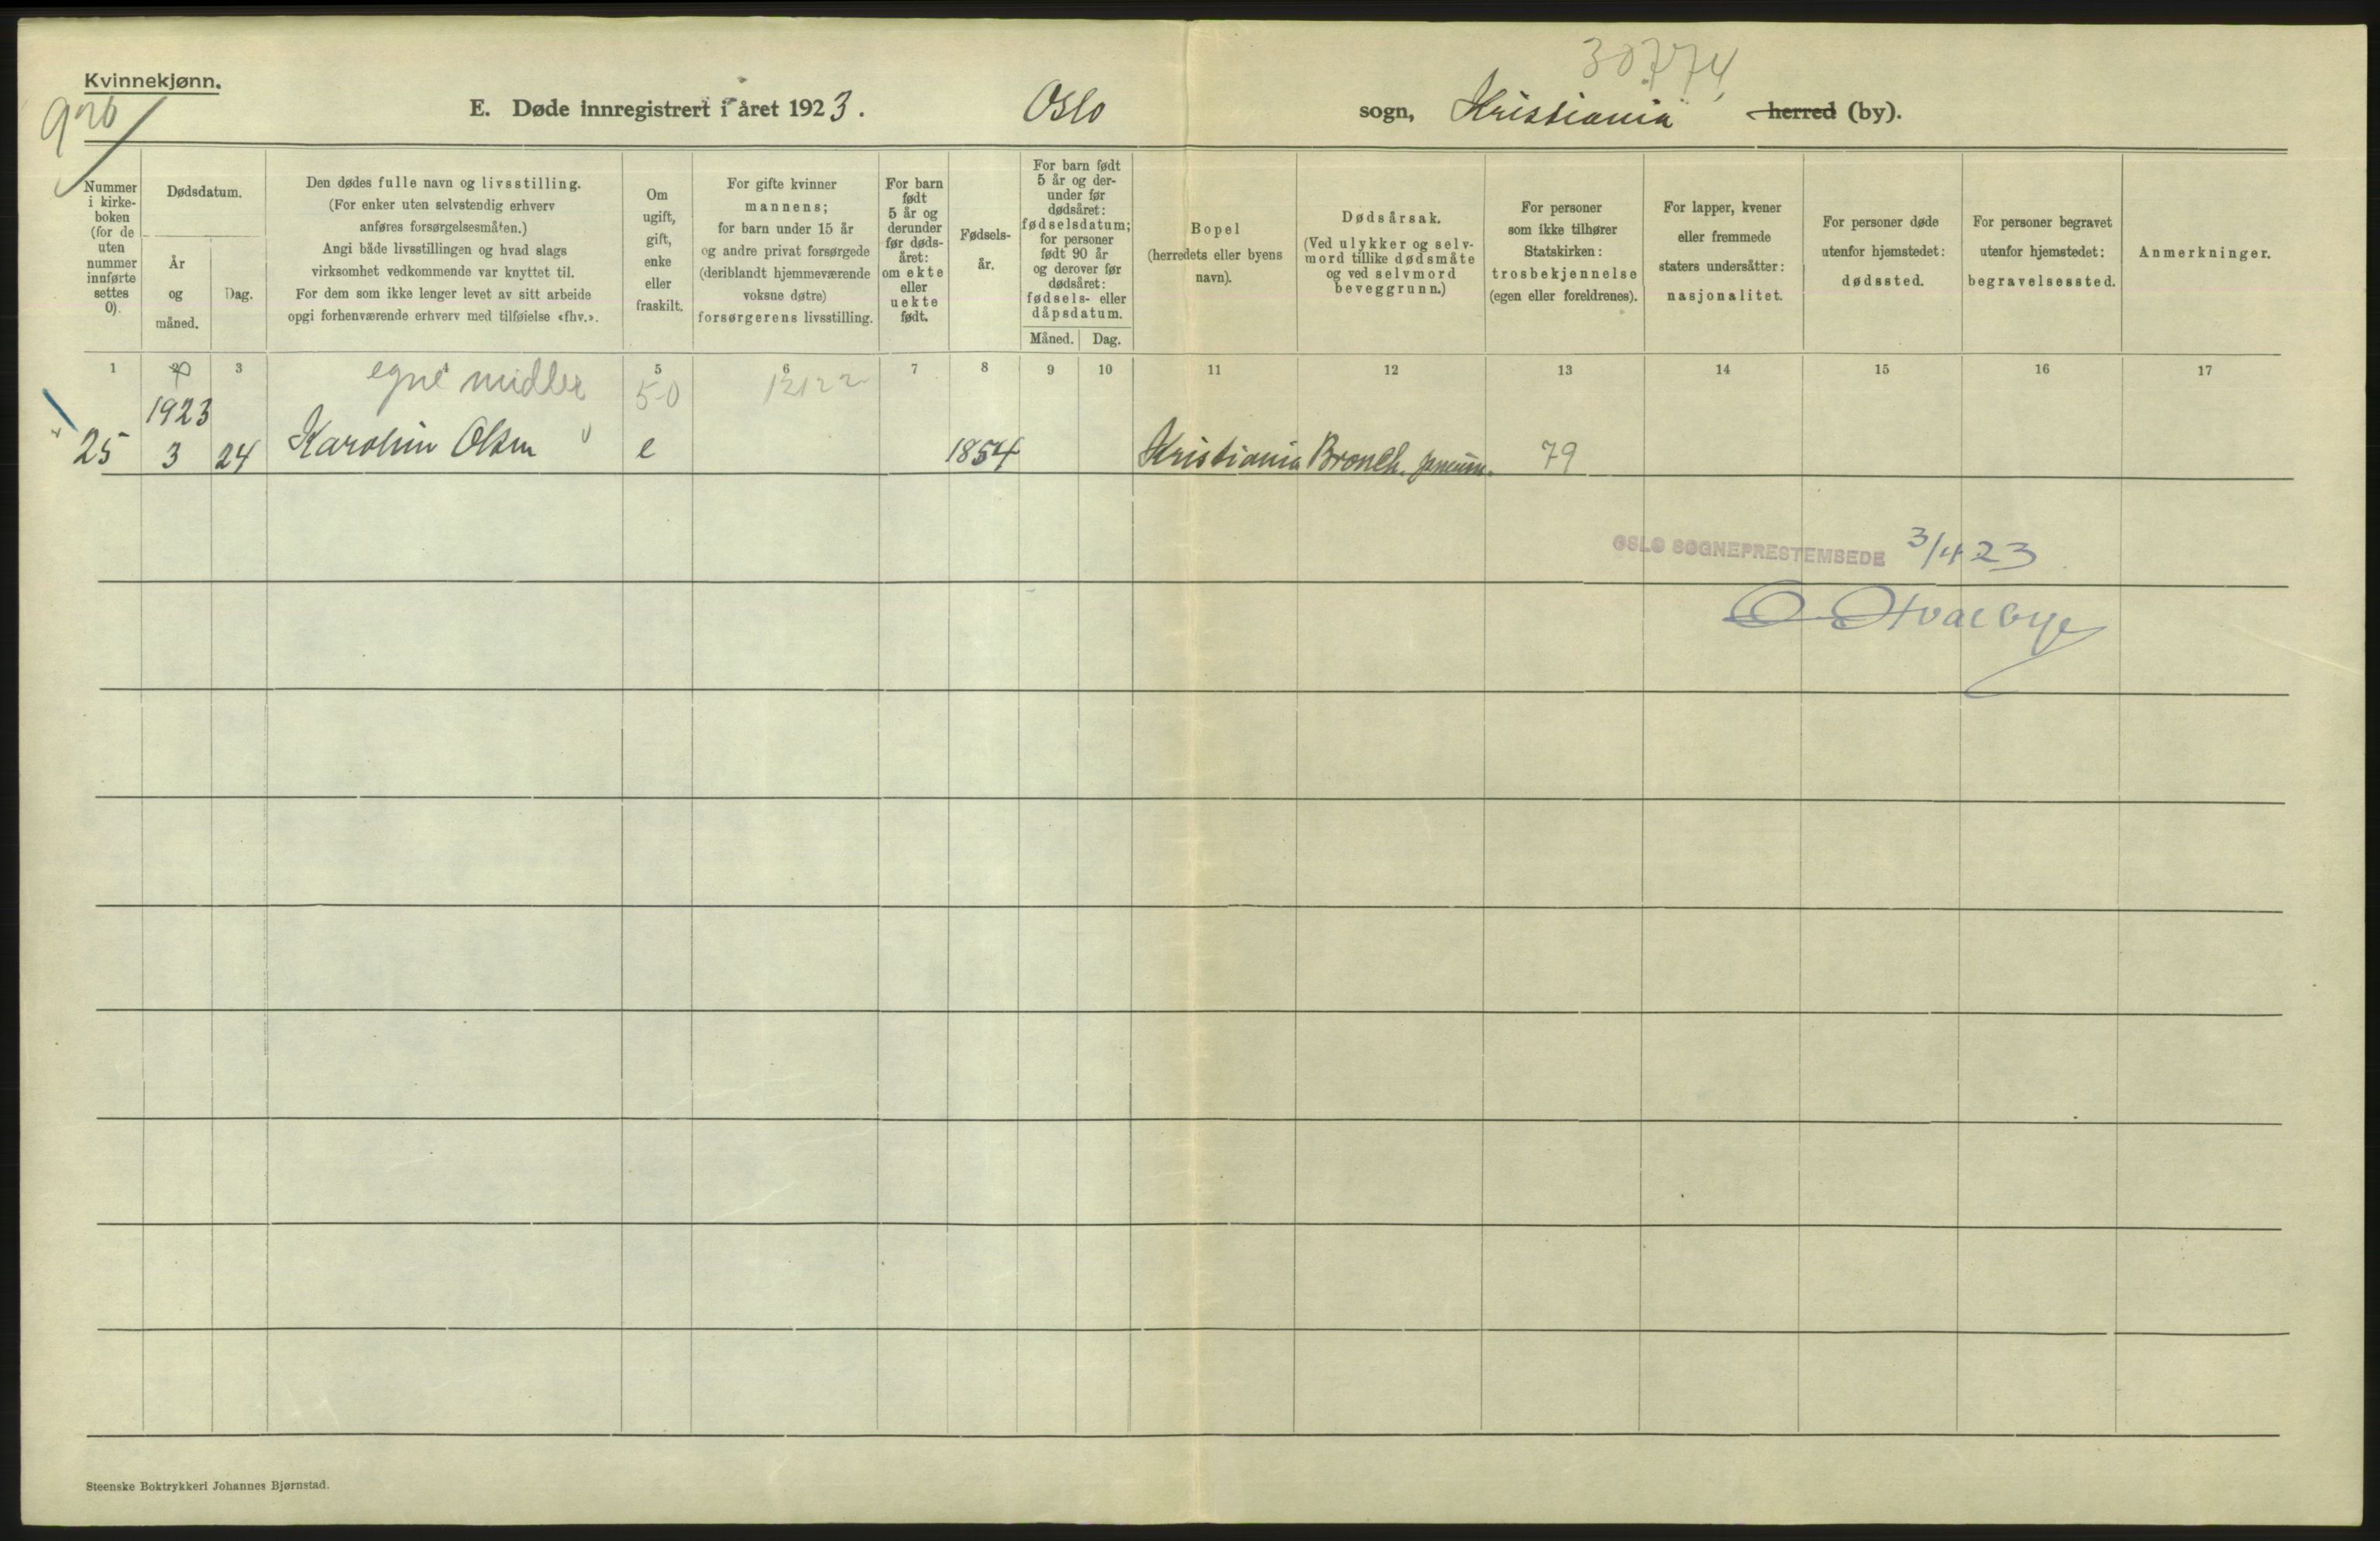 30774
Kvinnekjønn.
E. Døde innregistrert i året 1923. Oslo sogn, Kristiania herred (by).
Nummer i kirkeboken (for de uten nummer innførte settes 0).
Dødsdatum.
År og måned.
Dag.
Den dødes fulle navn og livsstilling.
(For enker uten selvstendig erhverv
anføres forsørgelsesmåten.)
Angi både livsstillingen og hvad slags
virksomhet vedkommende var knyttet til.
For dem som ikke lenger levet av sitt arbeide
opgi forhenværende erhverv med tilføielse «fhv.».
Om
ugift,
gift,
enke
eller
fraskilt.
For gifte kvinner
mannens;
for barn under 15 år
og andre privat forsørgede
(deriblandt hjemmeværende
voksne døtre)
forsørgerens livsstilling.
For barn
født
5 år og
derunder
før døds-
året:
om ekte
eller
uekte
født.
Fødsels-
år.
For barn født
5 år og der-
under før
dødsåret:
fødselsdatum;
for personer
født 90 år
og derover før
dødsåret:
fødsels- eller
dåpsdatum.
Måned. Dag.
Bopel
(herredets eller byens
navn).
Dødsårsak.
(Ved ulykker og selv-
mord tillike dødsmåte
og ved selvmord
beveggrunn.)
For personer
som ikke tilhører
Statskirken:
trosbekjennelse
(egen eller foreldrenes).
For lapper, kvener
eller fremmede
staters undersåtter:
nasjonalitet.
For personer døde
utenfor hjemstedet:
dødssted.
For personer begravet
utenfor hjemstedet:
begravelsessted.
Anmerkninger.
1 3 5 6 7 8 9 10 11 12 13 14 15 16 17
egne midler 50 12122
1923
25 3 24 Karolin Olsen e 1854 Kristiania Bronch. pneum. 79
OSLO SOGNEPRESTEMBEDE 3/4 23
Steenske Boktrykkeri Johannes Bjørnstad.